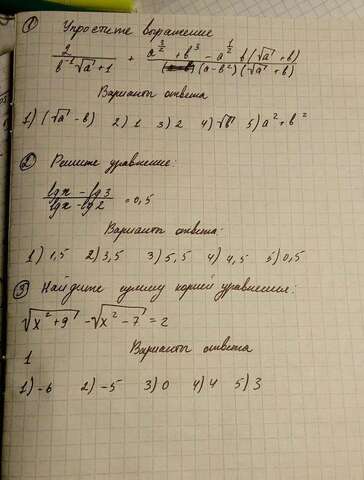 ① Упростите выражение
2 / (b⁻¹√a + 1) + (a^(3/2) + b³ - a^(1/2) b(√a + b)) / ((a - b²)(√a + b))
Варианты ответа
1) (√a - b) 2) 1 3) 2 4) √b 5) a² + b²
② Решите уравнение:
(lgx - lg3) / (lgx - lg2) = 0,5
Варианты ответа:
1) 1,5 2) 3,5 3) 5,5 4) 4,5 5) 0,5
③ Найдите сумму корней уравнения:
√(x² + 9) - √(x² - 7) = 2
1 Варианты ответа
1) -6 2) -5 3) 0 4) 4 5) 3